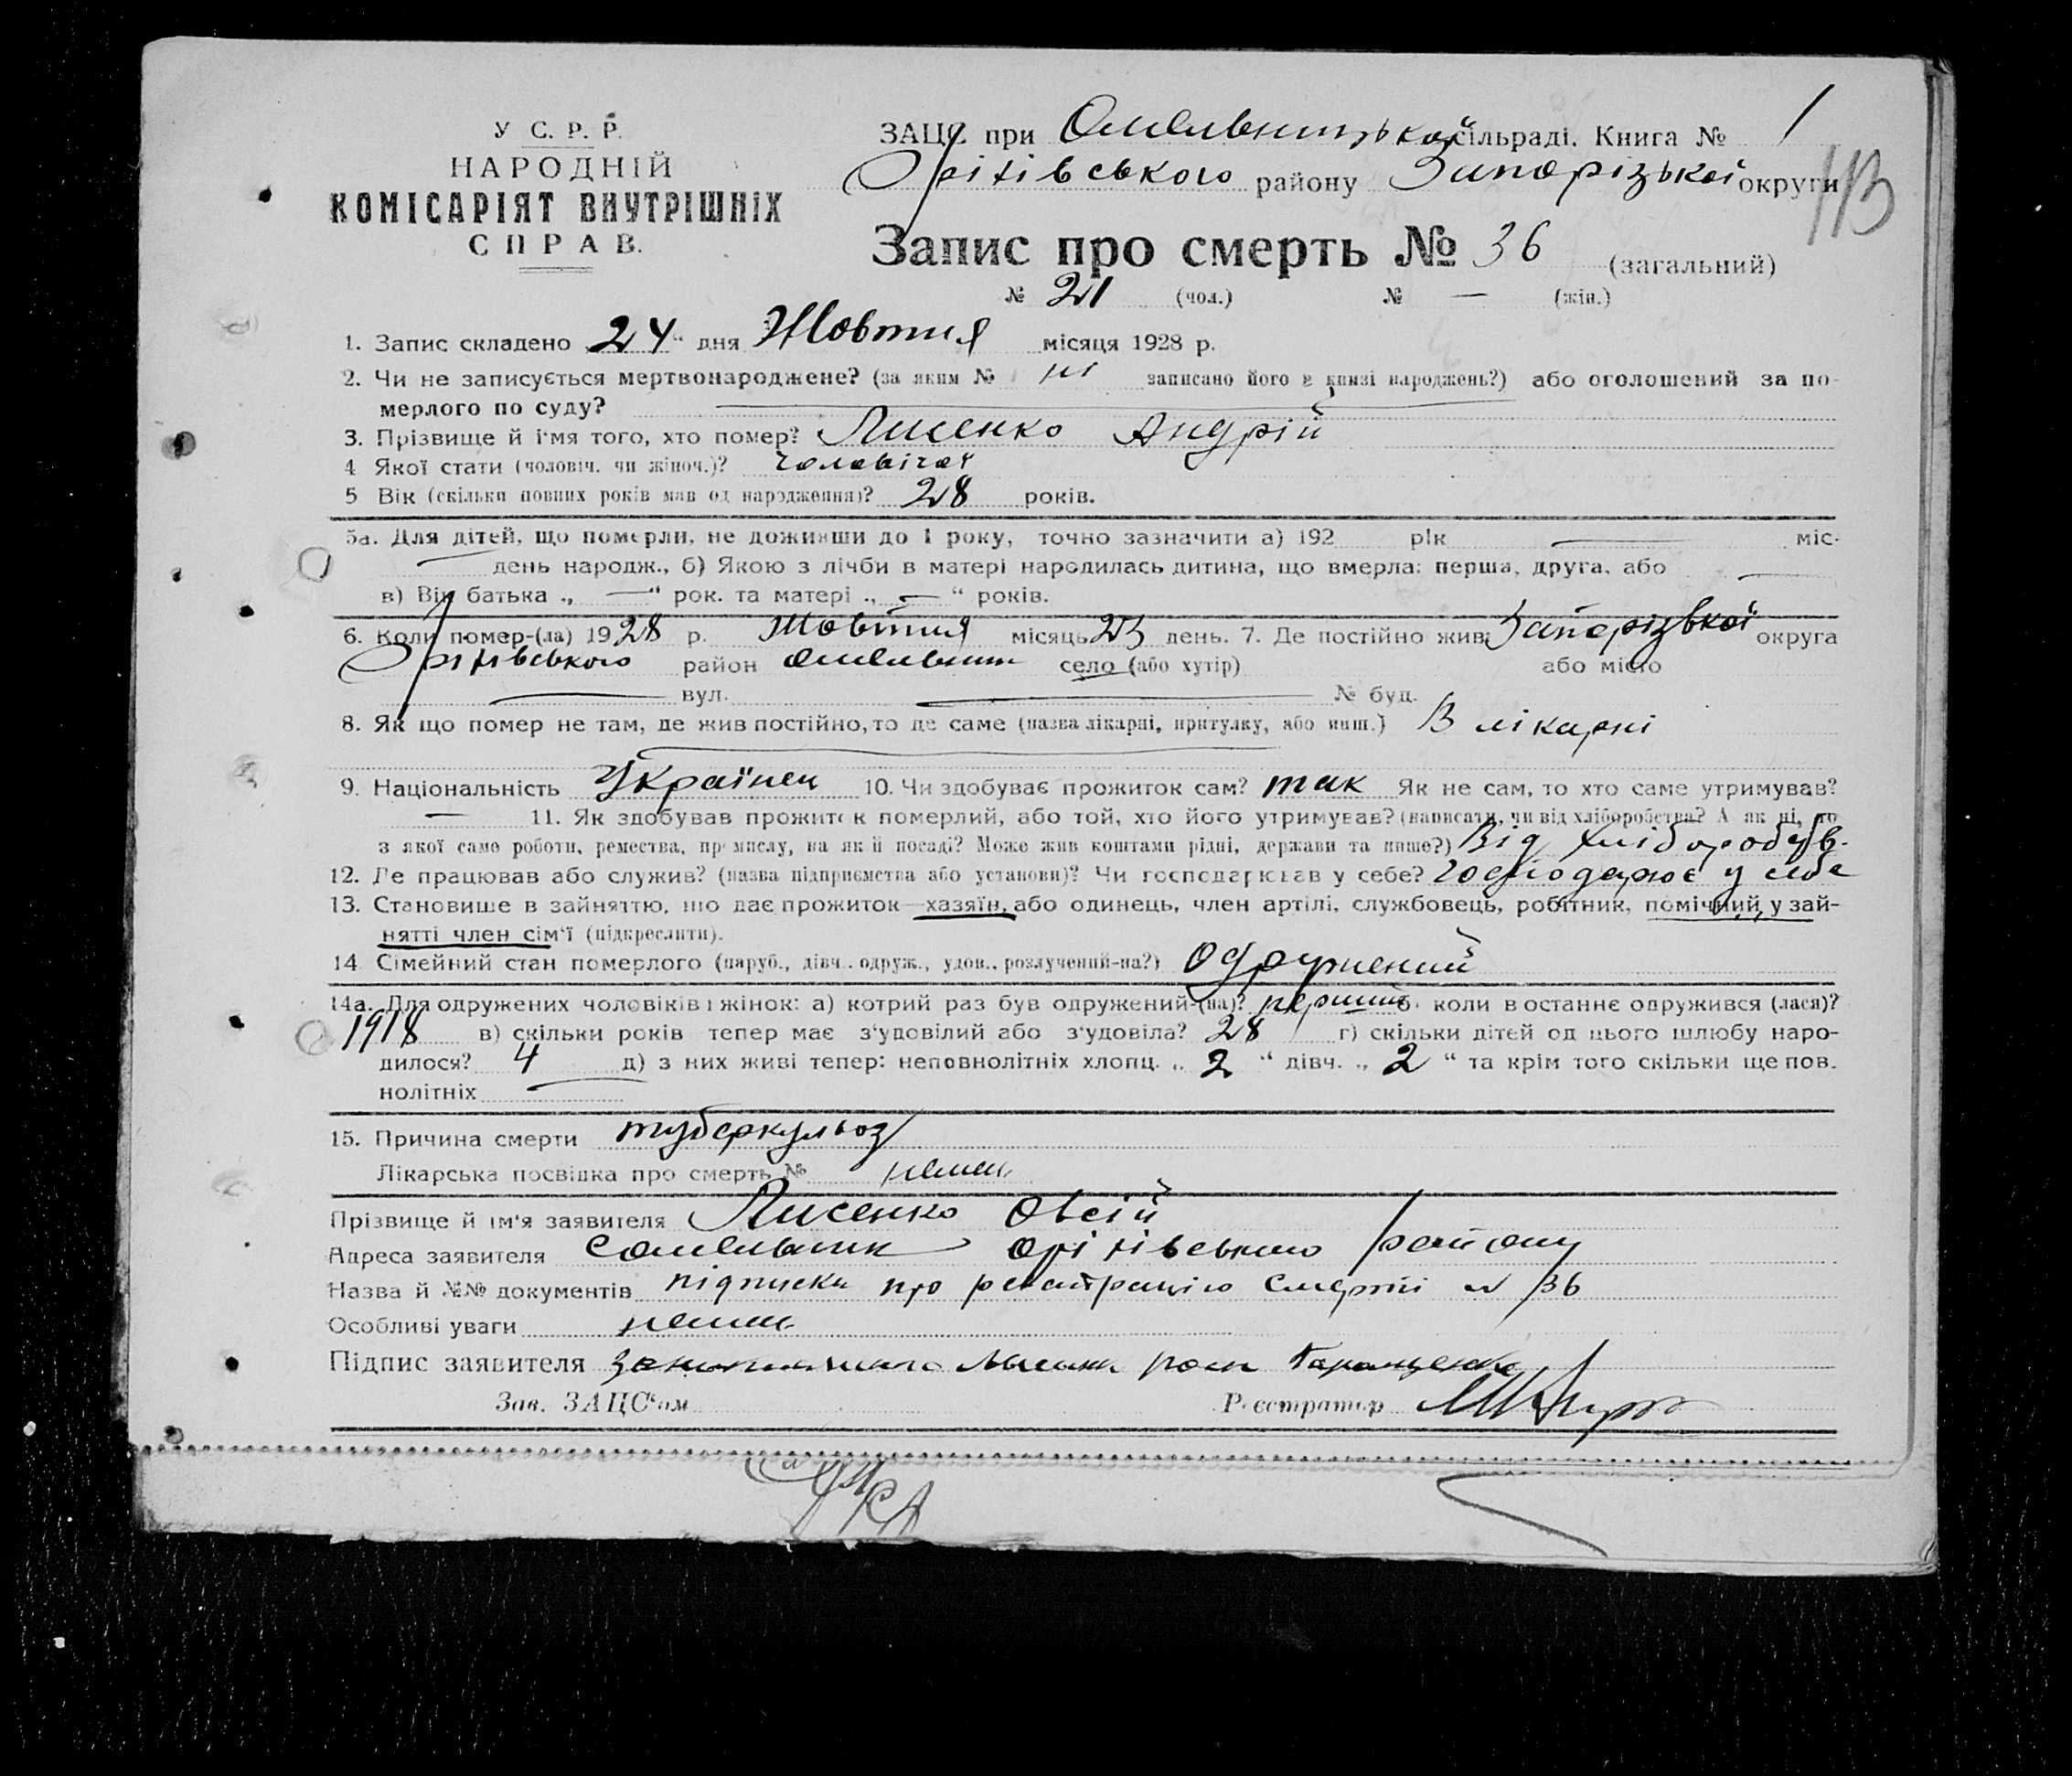 У С. Р. Р.
НАРОДНІЙ
КОМІСАРІЯТ ВНУТРІШНІХ
СПРАВ.
ЗАЦС при Омельницької сільраді. Книга № 1
Оріхівського району Запорізької округи
113
Запис про смерть № 36 (загальний)
№ 21 (чол.) № — (жін.)
1. Запис складено „24“ дня Жовтня місяця 1928 р.
2. Чи не записується мертвонароджене? (за яким № ні записано його в книзі народжень?) або оголошений за по-
мерлого по суду? —
3. Прізвище й ім'я того, хто помер? Лисенко Андрій
4 Якої стати (чоловіч. чи жіноч.)? чоловічої
5 Вік (скільки повних років мав од народження)? 28 років.
5а. Для дітей, що померли, не доживши до 1 року, точно зазначити а) 192 рік — міс.
— день народж., б) Якою з лічби в матері народилась дитина, що вмерла: перша, друга, або —
в) Вік батька „ —“ рок. та матері „ — “ років.
6. Коли помер-(ла) 1928 р. Жовтня місяць 23 день. 7. Де постійно жив Запорізької округа
Оріхівського район Омельник село (або хутір) або місто
— вул. — № буд.
8. Як що помер не там, де жив постійно, то де саме (назва лікарні, притулку, або инш.) В лікарні
9. Національність Українец 10. Чи здобуває прожиток сам? так Як не сам, то хто саме утримував?
— 11. Як здобував прожиток померлий, або той, хто його утримував? (написати, чи від хліборобства? А як ні, то
з якої само роботи, ремества, промислу, на якій посаді? Може жив коштами рідні, держави та инше?) Від хліборобств.
12. Де працював або служив? (назва підприємства або установи)? Чи господарював у себе? Господарює у себе
13. Становище в зайняттю, що дає прожиток—хазяїн, або одинець, член артілі, службовець, робітник, помічний у зай-
нятті член сім'ї (підкреслити).
14 Сімейний стан померлого (паруб., дівч., одруж., удов., розлучений-на?) Одружений
14а. Для одружених чоловіків і жінок: а) котрий раз був одружений-(на)? перший б. коли востаннє одружився (лася)?
1918 в) скільки років тепер має з'удовілий або з'удовіла? 28 г) скільки дітей од цього шлюбу наро-
дилося? 4 д) з них живі тепер: неповнолітніх хлопц. „ 2 “ дівч. „ 2 “ та крім того скільки ще пов.
нолітніх —
15. Причина смерти туберкульоз
Лікарська посвідка про смерть № немає
Прізвище й ім'я заявителя Лисенко Овсій
Адреса заявителя с Омельник Оріхівського району
Назва й №№ документів підписка про реєстрацію смерти № 36
Особливі уваги немає
Підпис заявителя
Зав. ЗАЦС'ом Реєстратор